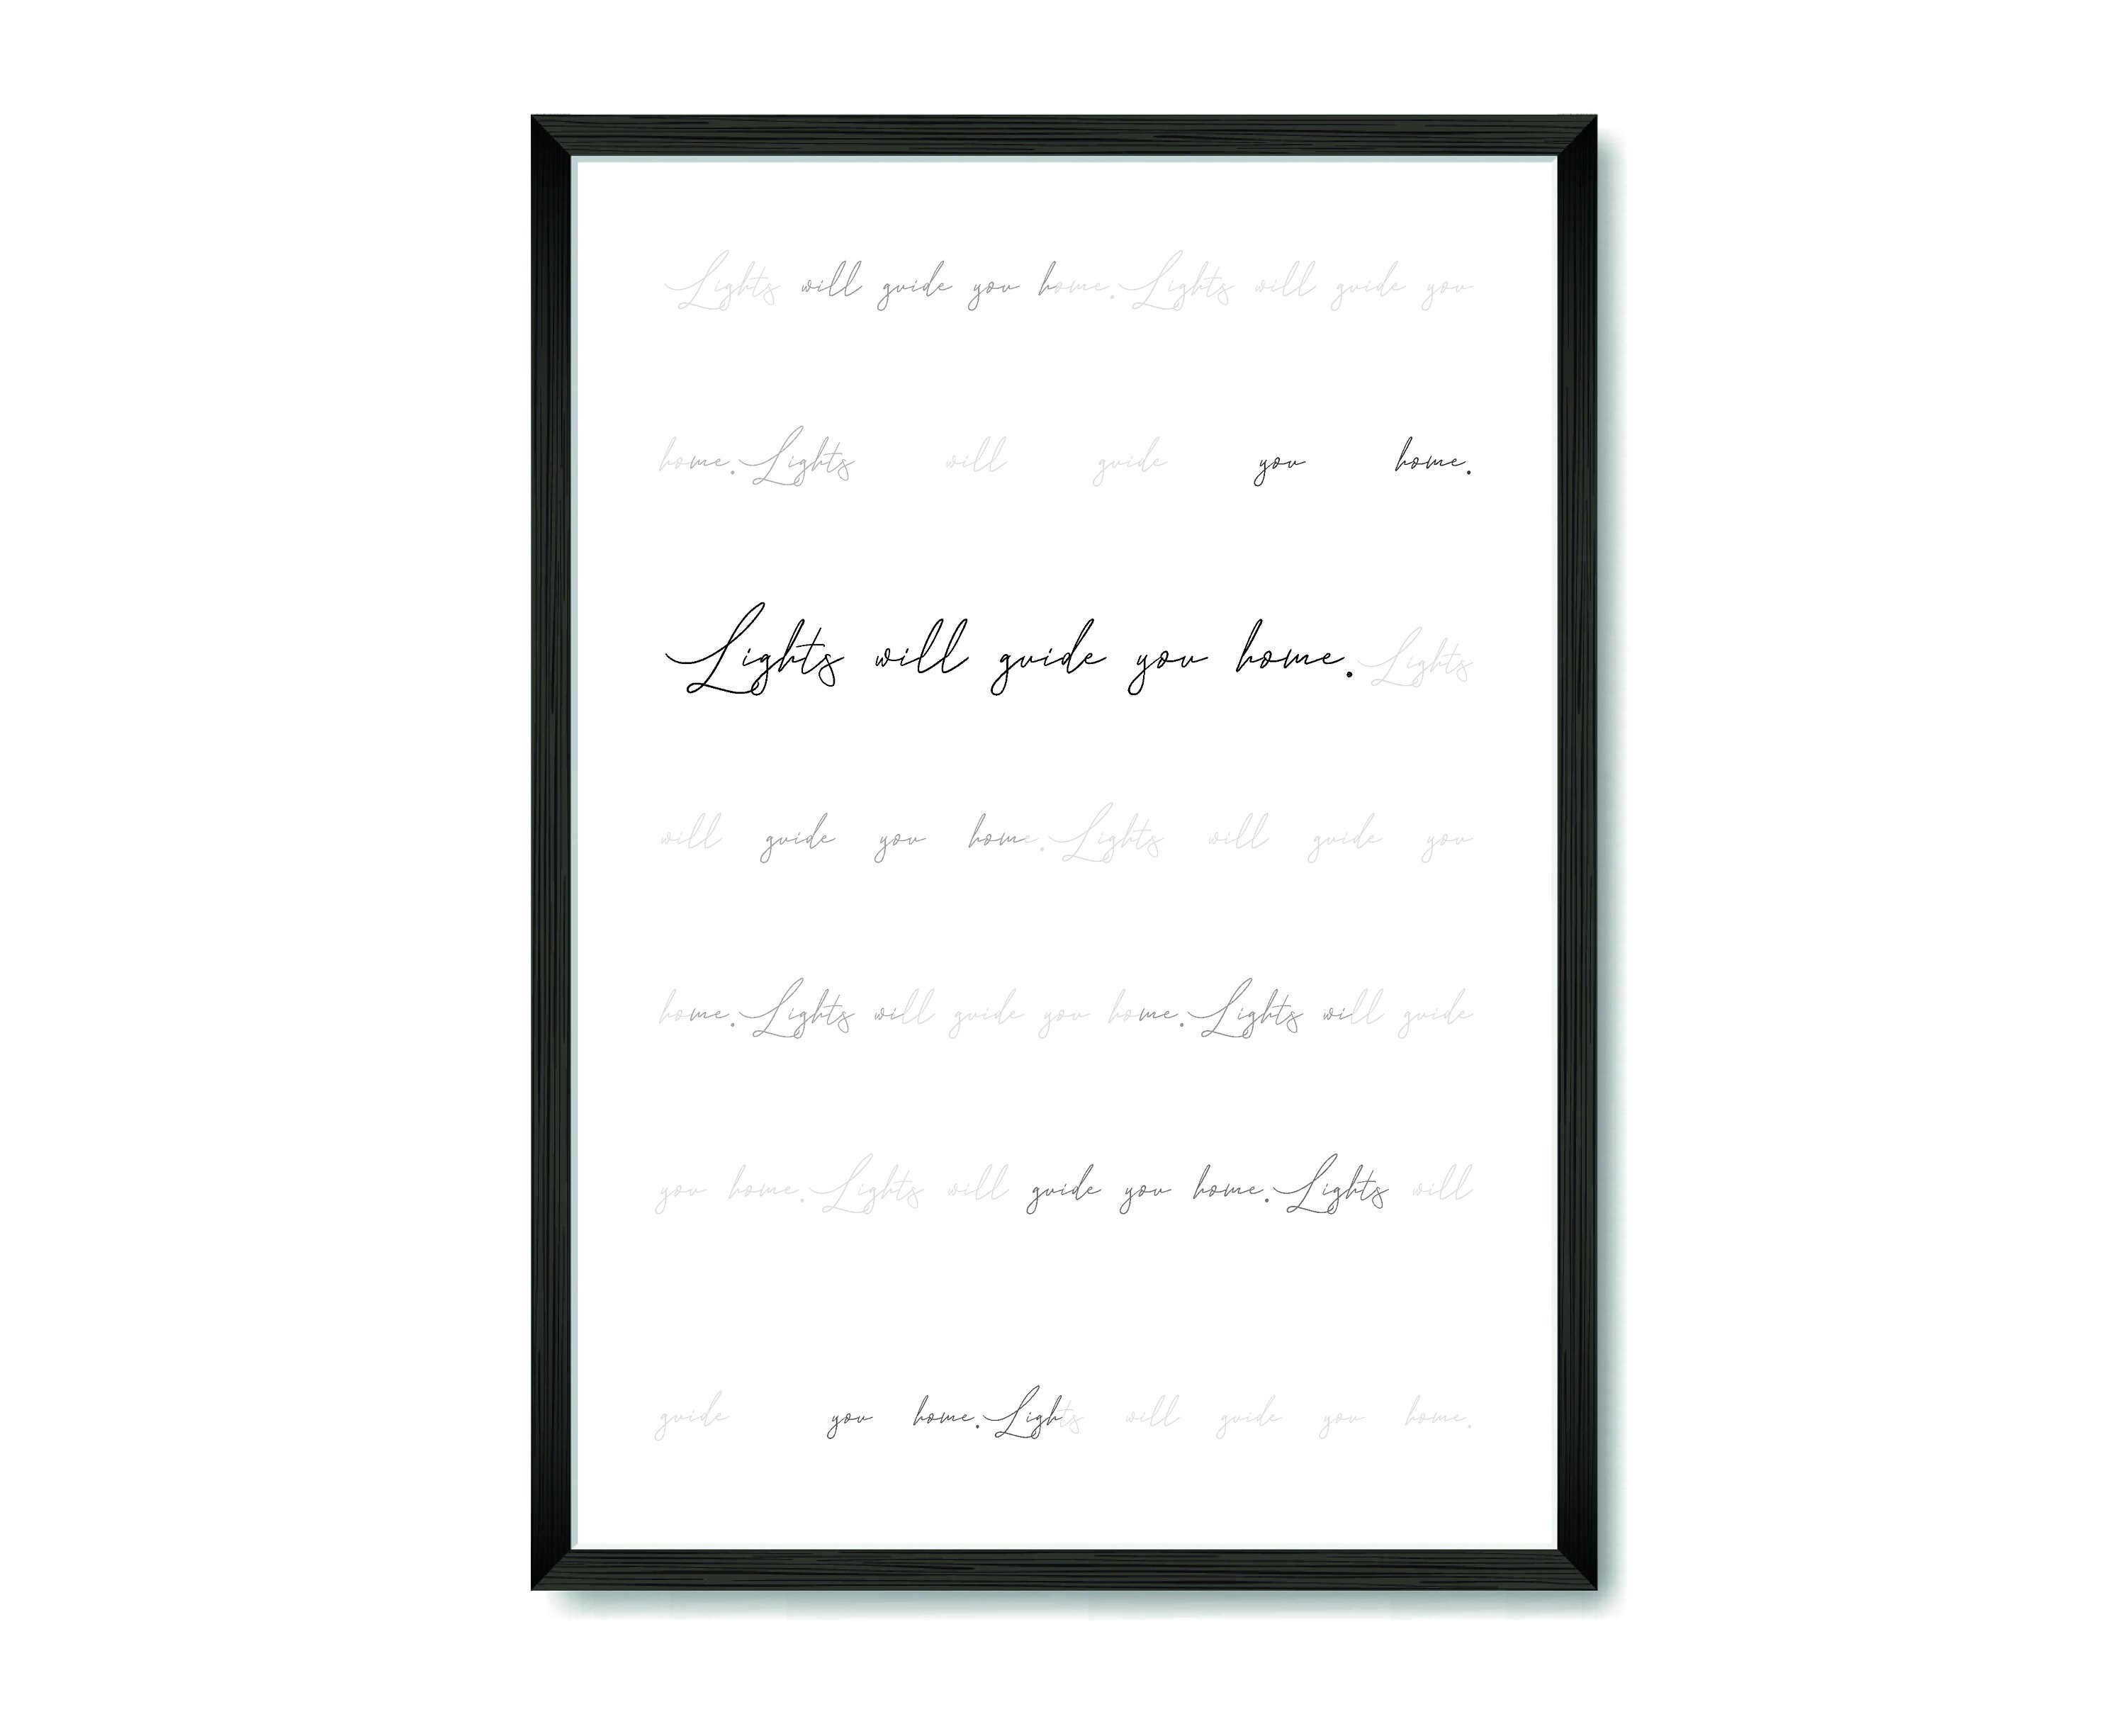 Lights will guide you home. Lights will guide you
home. Lights will guide you home.
Lights will guide you home. Lights
will guide you home. Lights will guide you
home. Lights will guide you home. Lights will guide
you home. Lights will guide you home. Lights will
guide you home. Lights will guide you home.